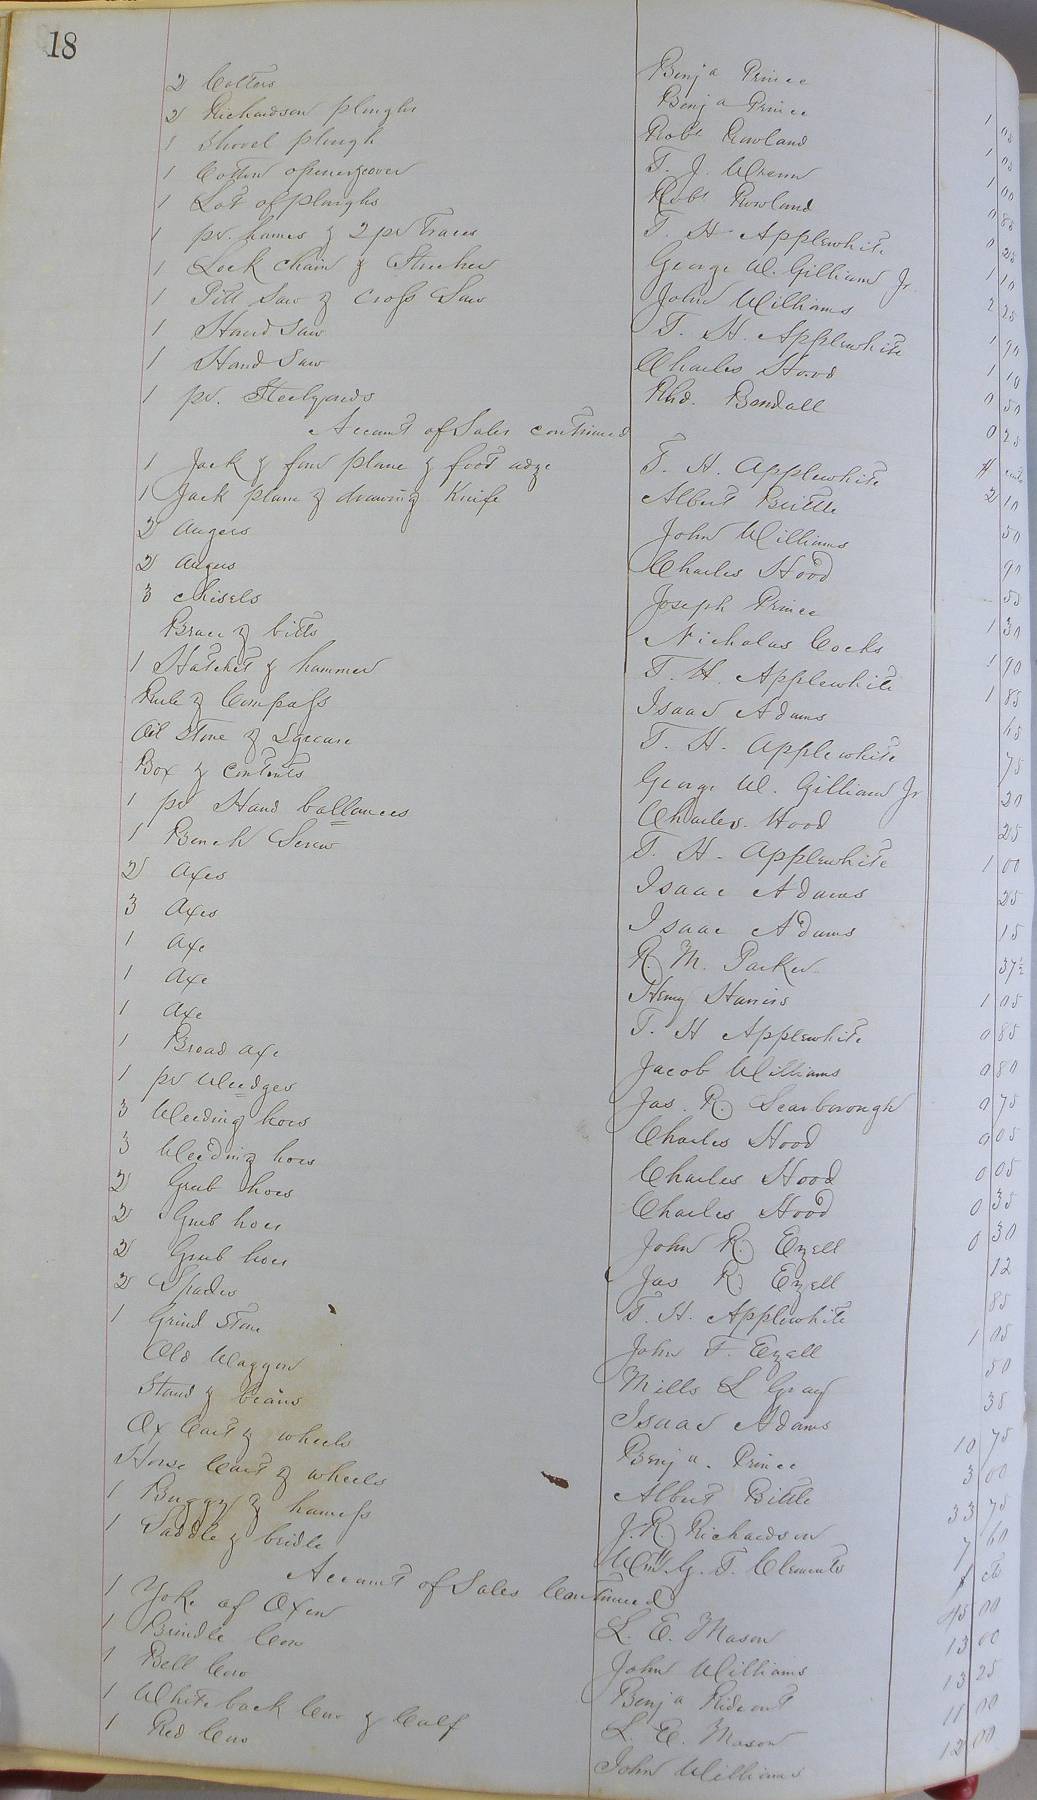 18
2 Colters Benja Prince 1 05
2 Richardson ploughs Benja Prince 1 05
1 Shovel plough Robt Rowland 1 00
1 Cotton opener & cover T. J. Wrenn 0 88
1 Lot of ploughs Robt Rowland 0 25
1 pr. hames & 2 pr Traces T. H. Applewhite 1 10
1 Lock chain & Strecher George W. Gilliam Jr. 2 25
1 Pitt Saw & Cross Saw John Williams 1 90
1 Hand Saw T. H. Applewhite 1 10
1 Hand Saw Charles Hood 0 50
1 pr. Steelyards Rhd. Bendall 0 25
Account of Sales continued $ cents
1 Jack & fore plane & foot adze T. H. Applewhite 2 10
1 Jack plane & drawing Knife Albert Brittle 50
2 Augers John Williams 90
2 Augers Charles Hood 55
3 Chisels Joseph Prince 1 30
Brace & bitts Nicholas Cocks 1 90
1 Hatchet & hammer T. H. Applewhite 1 85
Rule & Compass Isaac Adams 65
Oil Stone & Square T. H. Applewhite 75
Box & contents George W. Gilliam Jr 20
1 pr Hand ballances Charles Hood 25
1 Bench Screw T. H. Applewhite 1 00
2 Axes Isaac Adams 25
3 Axes Isaac Adams 15
1 Axe R. M. Parker 37½
1 Axe Henry Harris 1 05
1 Axe T. H Applewhite 0 85
1 Broad axe Jacob Williams 0 80
1 pr Wedges Jas. R. Scarborough 0 75
3 Weeding hoes Charles Hood 0 05
3 Weeding hoes Charles Hood 0 05
2 Grub hoes Charles Hood 0 35
2 Grub hoes John R. Ezell 0 30
2 Grub hoes Jas R Ezell 12
2 Spades T. H. Applewhite 85
1 Grind Stone John F. Ezell 1 05
Old Waggon Mills L Gray 50
Stand & beans Isaac Adams 38
Ox Cart & wheels Benja. Prince 10 75
Horse Cart & wheels Albert Bittle 3 00
1 Buggy & harness J. R. Richardson 33 75
1 Saddle & bridle Wm G. T. Clements 7 60
Account of Sales Continued $ cts
1 Yoke of Oxen L. E. Mason 45 00
1 Brindle Cow John Williams 13 00
1 Bell Cow Benja Rideout 13 25
1 White back Cow & Calf L. E. Mason 11 00
1 Red Cow John Williams 12 00